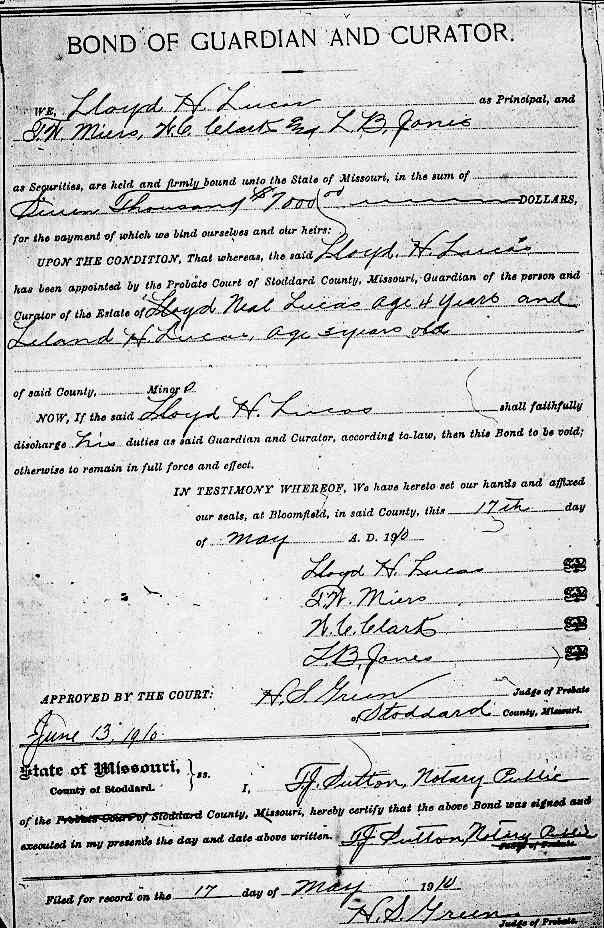 BOND OF GUARDIAN AND CURATOR.
WE, Lloyd H. Lucas as Principal, and
T.W. Miers, W.C. Clark and L.B. Jones
as Securities, are held and firmly bound unto the State of Missouri, in the sum of
Seven Thousand $7000 00 DOLLARS,
for the payment of which we bind ourselves and our heirs:
UPON THE CONDITION, That whereas, the said Lloyd. H. Lucas
has been appointed by the Probate Court of Stoddard County, Missouri, Guardian of the person and
Curator of the Estate of Lloyd Neal Lucas age 4 years and
Leland H. Lucas, age 2 years old
of said County, Minor s
NOW, If the said Lloyd H. Lucas shall faithfully
discharge his duties as said Guardian and Curator, according to law, then this Bond to be void;
otherwise to remain in full force and effect.
IN TESTIMONY WHEREOF, We have hereto set our hands and affixed
our seals, at Bloomfield, in said County, this 17th day
of May A. D. 1910
Lloyd H. Lucas
T.W. Miers
W.C. Clark
L.B. Jones
APPROVED BY THE COURT: H.S. Green Judge of Probate
of Stoddard County, Missouri.
June 13, 1910
State of Missouri, } ss.
County of Stoddard. I, T.J. Sutton, Notary Public
of the Probate Court of Stoddard County, Missouri, hereby certify that the above Bond was signed and
executed in my presence the day and date above written. T.J. Sutton Notary Public
Judge of Probate.
Filed for record on the 17 day of May 1910
H.S. Green
Judge of Probate.